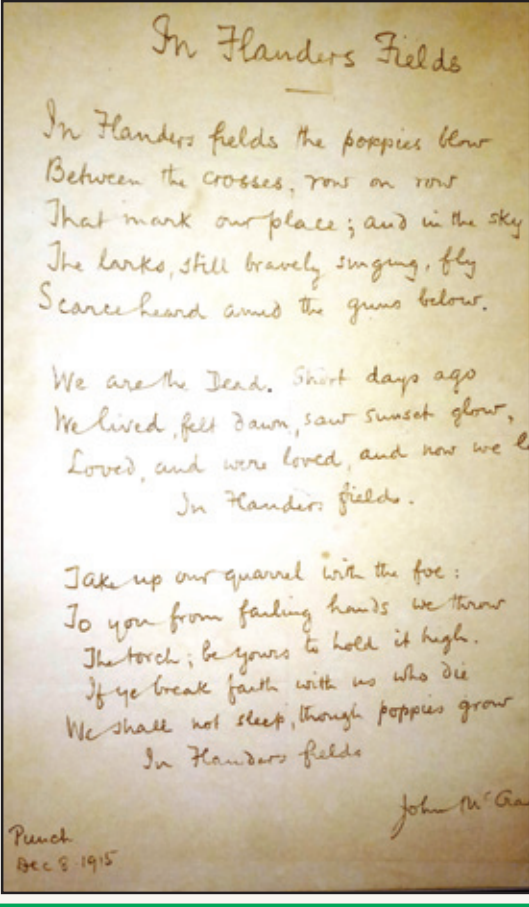 In Flanders Fields
In Flanders fields the poppies blow
Between the crosses, row on row
That mark our place; and in the sky
The larks, still bravely singing, fly
Scarce heard amid the guns below.
We are the Dead. Short days ago
We lived, felt dawn, saw sunset glow,
Loved, and were loved, and now we
In Flanders fields.
Take up our quarrel with the foe:
To you from failing hands we throw
The torch; be yours to hold it high.
If ye break faith with us who die
We shall not sleep, though poppies grow
In Flanders fields
John McCra
Punch
Dec 8 1915